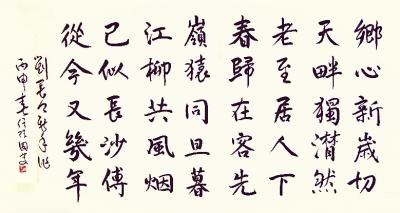 鄉心新歲切
天畔獨潸然
老至居人下
春歸在客先
嶺猿同旦暮
江柳共風烟
已似長沙傅
從今又幾年
劉長卿新年作
丙申春